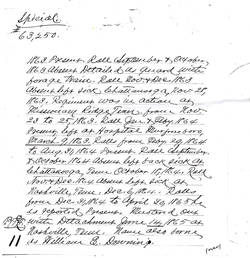 Special
#
63,250.
1863 Present. Roll September & October,
1863 Absent Detailed as Guard with
forage Train. Roll Nov & Dec. 1863
absent left sick Chattanooga Nov 25,
1863. Regiment was in action at
Missionary Ridge Tenn from Nov.
23 to 25 1863. Roll Jan & Feby 1864
left at Hospital Murfreesboro
March 9, 1863. Rolls from Feby 29, 1864
to Aug 31, 1864 Present. Roll September
& October 1864 Absent left back sick at
Chattanooga Tenn October 18, 1864. Roll
Nov & Dec 1864 Absent left sick at
Nashville Tenn. Dec 6, 1864. Rolls
from Dec 31, 1864 to April 30, 1865 he
is reported Present. Mustered out
with Detachment June 14, 1865 at
Nashville Tenn. Name also borne
11 as William B. Downing.